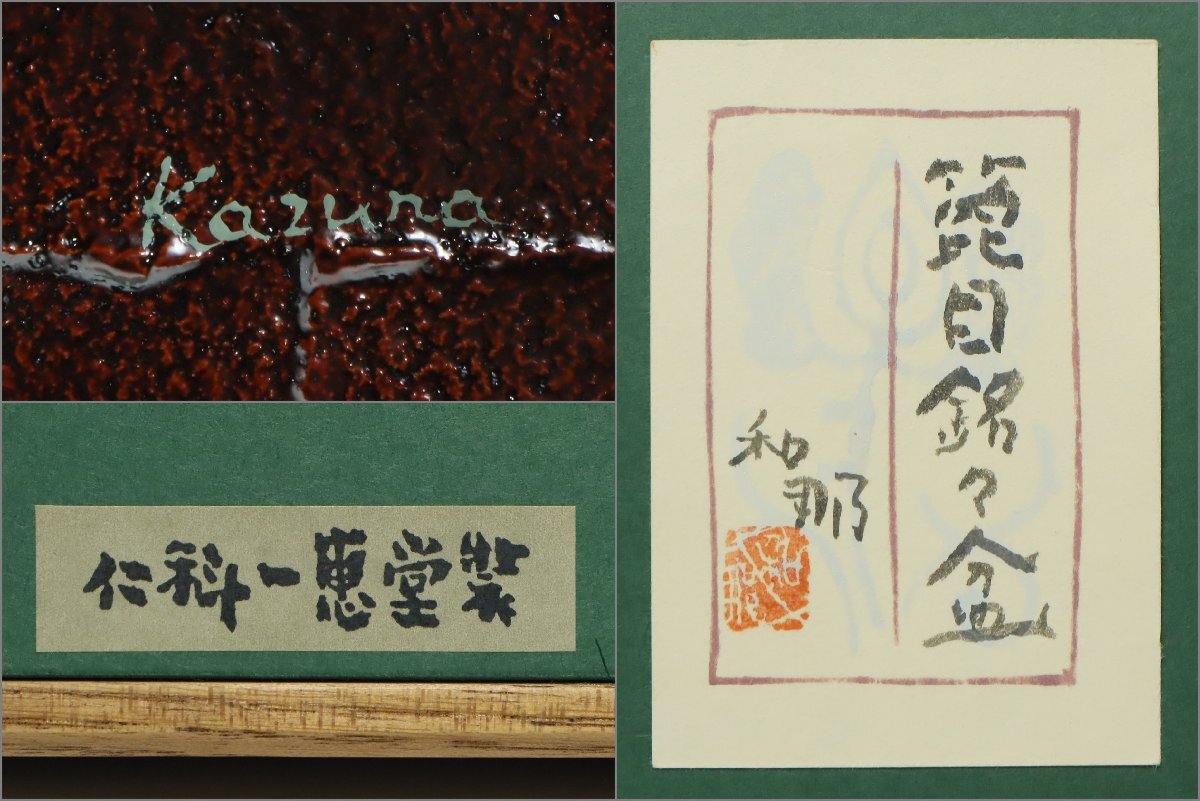 Kazuna
仁科一惠堂製
箆目銘々盆
和那